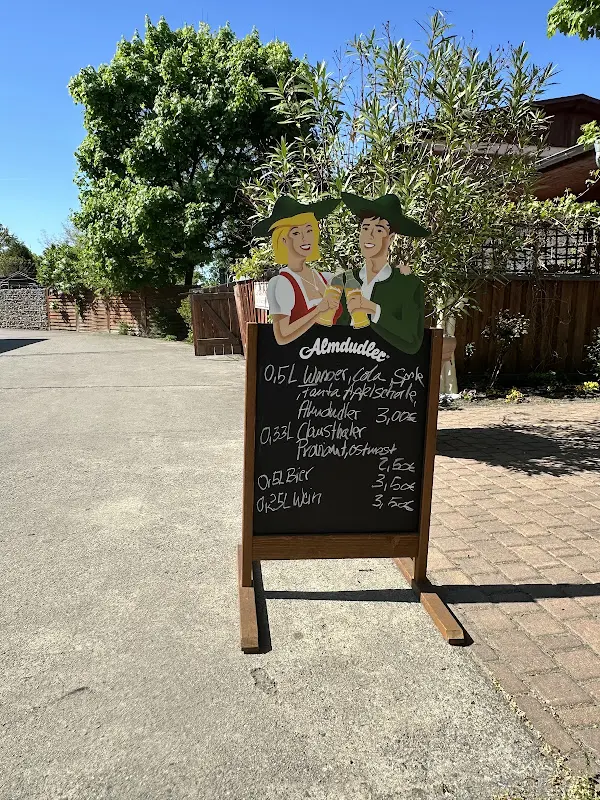 Almdudler
0,5L Wasser, Cola, Spezi,
Fanta, Apfelschorle,
Almdudler 3,00€
0,33L Clausthaler
Proviant, Ostmost
2,50€
0,5L Bier 3,50€
0,25L Wein 3,50€